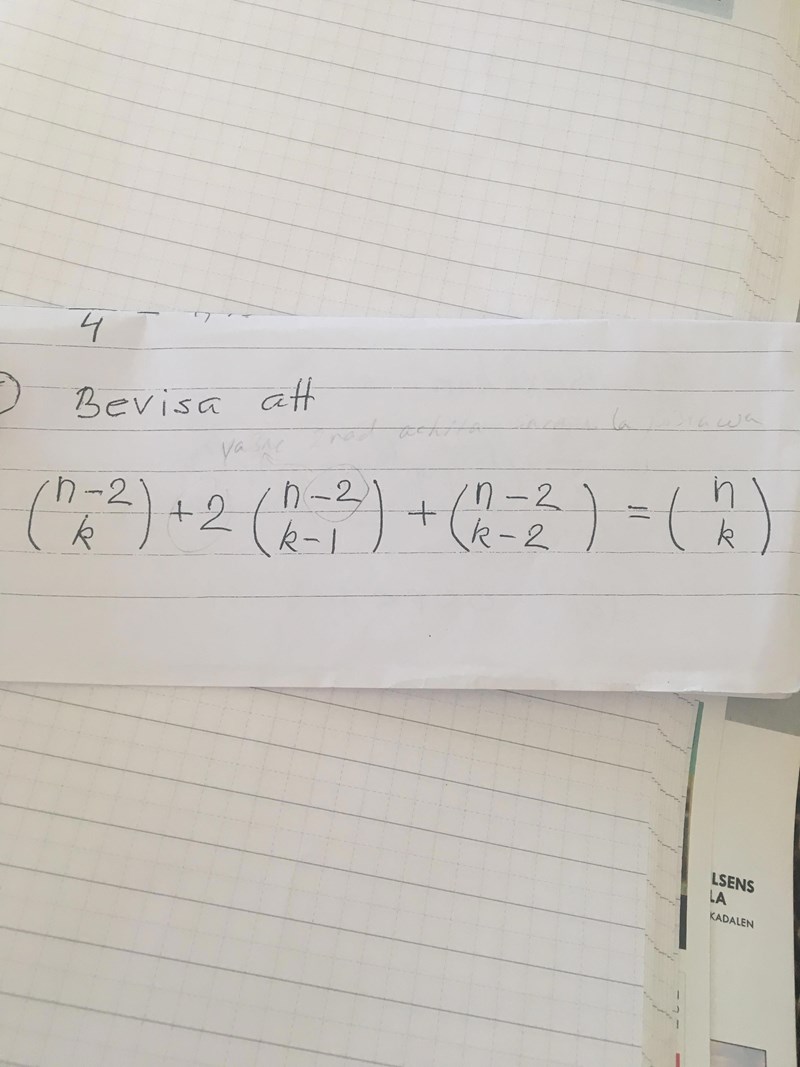 4
Bevisa att
(n-2 k) + 2 (n-2 k-1) + (n-2 k-2) = (n k)
LSENS
LA
KADALEN